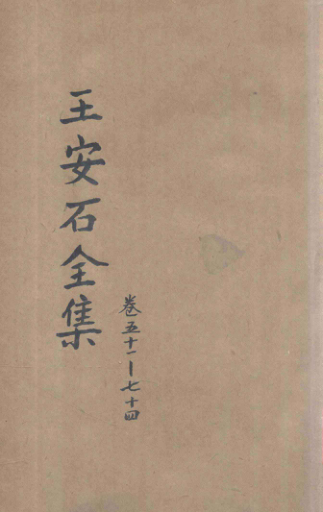 王安石全集
卷五十一—七十四